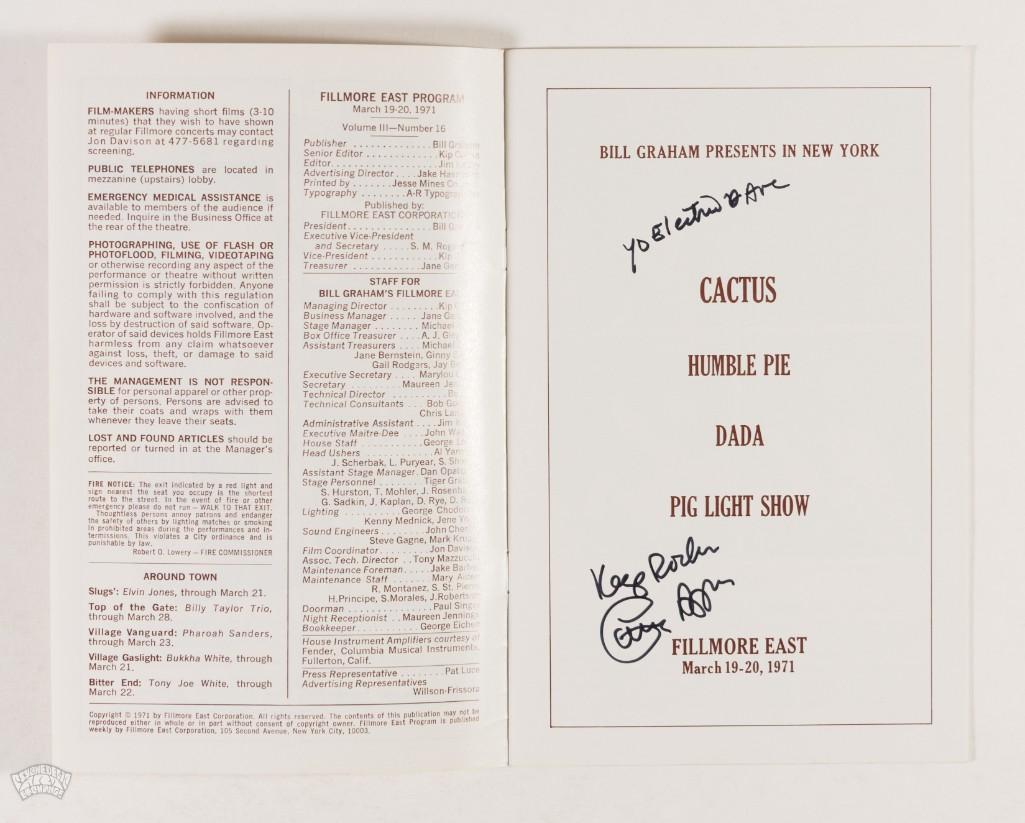 INFORMATION
FILM-MAKERS having short films (3-10
minutes) that they wish to have shown
at regular Fillmore concerts may contact
Jon Davison at 477-5681 regarding
screening.
PUBLIC TELEPHONES are located in
mezzanine (upstairs) lobby.
EMERGENCY MEDICAL ASSISTANCE is
available to members of the audience if
needed. Inquire in the Business Office at
the rear of the theatre.
PHOTOGRAPHING, USE OF FLASH OR
PHOTOFLOOD, FILMING, VIDEOTAPING
or otherwise recording any aspect of the
performance or theatre without written
permission is strictly forbidden. Anyone
failing to comply with this regulation
shall be subject to the confiscation of
hardware and software involved, and the
loss by destruction of said software. Op-
erator of said devices holds Fillmore East
harmless from any claim whatsoever
against loss, theft, or damage to said
devices and software.
THE MANAGEMENT IS NOT RESPON-
SIBLE for personal apparel or other prop-
erty of persons. Persons are advised to
take their coats and wraps with them
whenever they leave their seats.
LOST AND FOUND ARTICLES should be
reported or turned in at the Manager's
office.
FIRE NOTICE: The exit indicated by a red light and
sign nearest the seat you occupy is the shortest
route to the street. In the event of fire or other
emergency please do not run — WALK TO THAT EXIT.
Thoughtless persons annoy patrons and endanger
the safety of others by lighting matches or smoking
in prohibited areas during the performances and in-
termissions. This violates a City ordinance and is
punishable by law.
Robert O. Lowery — FIRE COMMISSIONER
AROUND TOWN
Slugs': Elvin Jones, through March 21.
Top of the Gate: Billy Taylor Trio,
through March 28.
Village Vanguard: Pharoah Sanders,
through March 23.
Village Gaslight: Bukkha White, through
March 21.
Bitter End: Tony Joe White, through
March 22.
FILLMORE EAST PROGRAM
March 19-20, 1971
Volume III—Number 16
Publisher . . . . . . . . . . . . . . Bill
Senior Editor . . . . . . . . . . . . Kip
Editor . . . . . . . . . . . . . . . . Jim
Advertising Director . . . . Jake
Printed by . . . . . . . Jesse Mines
Typography . . . . . . . . A-R
Published by:
FILLMORE EAST CORPORATION
President . . . . . . . . . . . . . . Bill
Executive Vice-President
and Secretary . . . . . S. M.
Vice-President . . . . . . . . . . . Kip
Treasurer . . . . . . . . . . . . Jane
STAFF FOR
BILL GRAHAM'S FILLMORE
Managing Director . . . . . . . . . Kip
Business Manager . . . . . Jane
Stage Manager . . . . . . . . Michael
Box Office Treasurer . . . . A. J.
Assistant Treasurers . . . Michael
Jane Bernstein, Ginny
Gail Rodgers, Jay
Executive Secretary . . . . Marylou
Secretary . . . . . . . . . Maureen
Technical Director
Technical Consultants . . . Bob
Chris
Administrative Assistant . . . . Jim
Executive Maitre-Dee . . . . John
House Staff . . . . . . . . . . . George
Head Ushers . . . . . . . . . . . . Al
J. Scherbak, L. Puryear, S.
Assistant Stage Manager. Dan
Stage Personnel . . . . . . . Tiger
S. Hurston, T. Mohler, J.
G. Sadkin, J. Kaplan, D. Rye, D.
Lighting . . . . . . . . . . . George
Kenny Mednick, Jene
Sound Engineers . . . . . . . John
Steve Gagne, Mark
Film Coordinator . . . . . . . . Jon
Assoc. Tech. Director . . Tony
Maintenance Foreman . . . . . Jake
Maintenance Staff . . . . . . Mary
R. Montanez, S. St.
H.Principe, S.Morales,
Doorman . . . . . . . . . . . Paul
Night Receptionist . . Maureen
Bookkeeper . . . . . . . . . George
House Instrument Amplifiers courtesy of
Fender, Columbia Musical Instruments,
Fullerton, Calif.
Press Representative . . . . . . Pat
Advertising Representatives
Willson-Frissora
Copyright © 1971 by Fillmore East Corporation. All rights reserved. The contents of this publication may not be
reproduced either in whole or in part without consent of copyright owner. Fillmore East Program is published
weekly by Fillmore East Corporation, 105 Second Avenue, New York City, 10003.
BILL GRAHAM PRESENTS IN NEW YORK
yo Electric Dave
CACTUS
HUMBLE PIE
DADA
PIG LIGHT SHOW
Keep Rockin
FILLMORE EAST
March 19-20, 1971